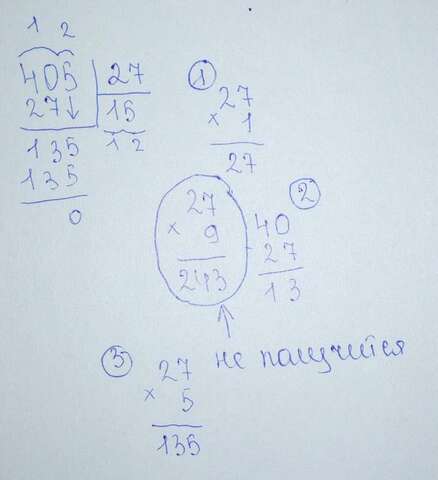 1 2
405 27
27↓ 15
135 1 2
135
0
①
27
× 1
27
②
27
× 9
243
- 40
27
13
не получится
③
27
× 5
135